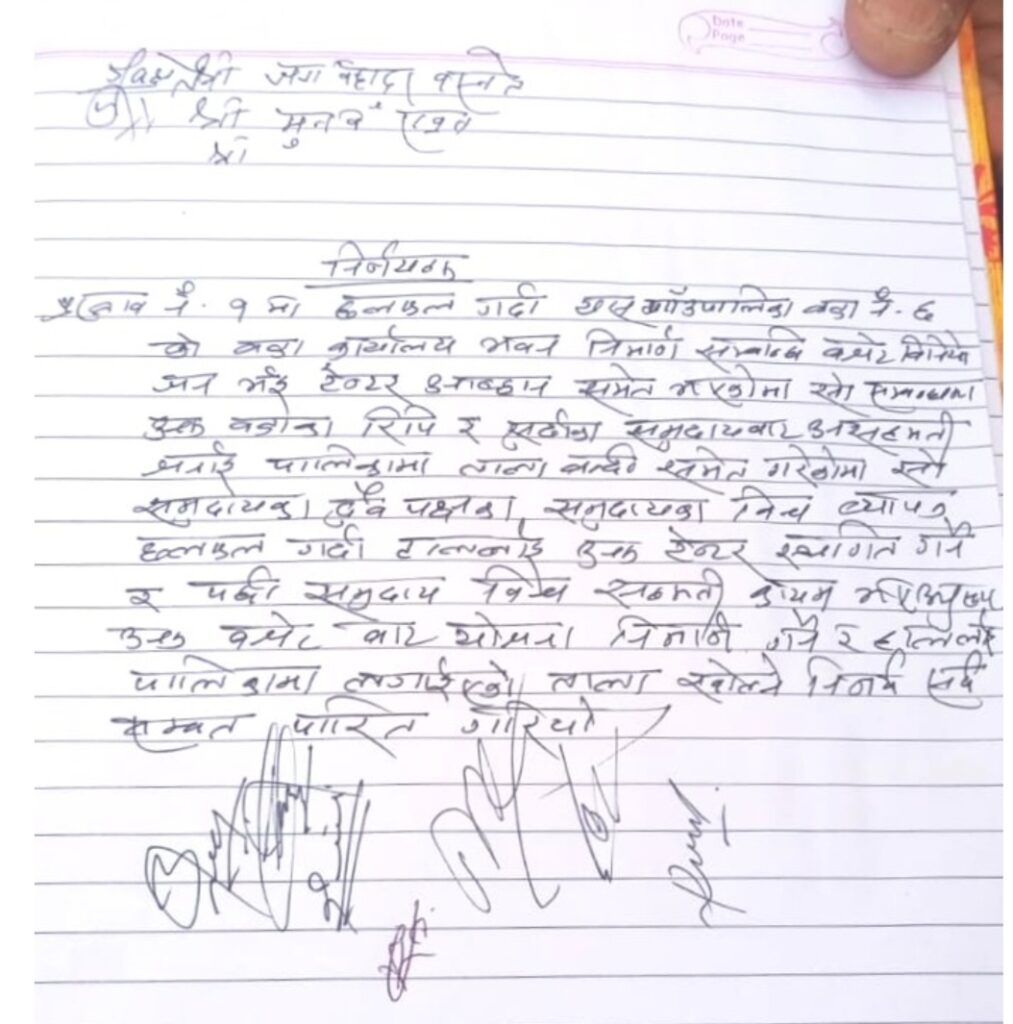 Date
Page
श्री जंग बहादुर बस्नेत
श्री मुनव
श्री
निर्णयहरू
प्रस्ताव नं. १ मा छलफल गर्दा यस गाँउपालिका वडा नं. ६
को वडा कार्यालय भवन निमार्ण सम्बन्धि बजेट विनियो
जन भई टेन्डर आब्हान समेत भएकोमा सो सम्बन्धमा
उक्त वडाका रिपि र समुदायबाट असहमती
जनाई पालिकामा ताला बन्दी समेत गरेकोमा सो
समुदायका दुवै पक्षका समुदायका विच व्यापक
छलफल गर्दा हाललाई उक्त टेन्डर स्थागित गर्ने
र पछी समुदाय विच सहमती कायम भए
उक्त बजेट बाट योजना निमार्ण गर्ने र हाललाई
पालिकामा लगाईएको ताला खोल्ने निर्णय सर्व
सम्मत पारित गरियो